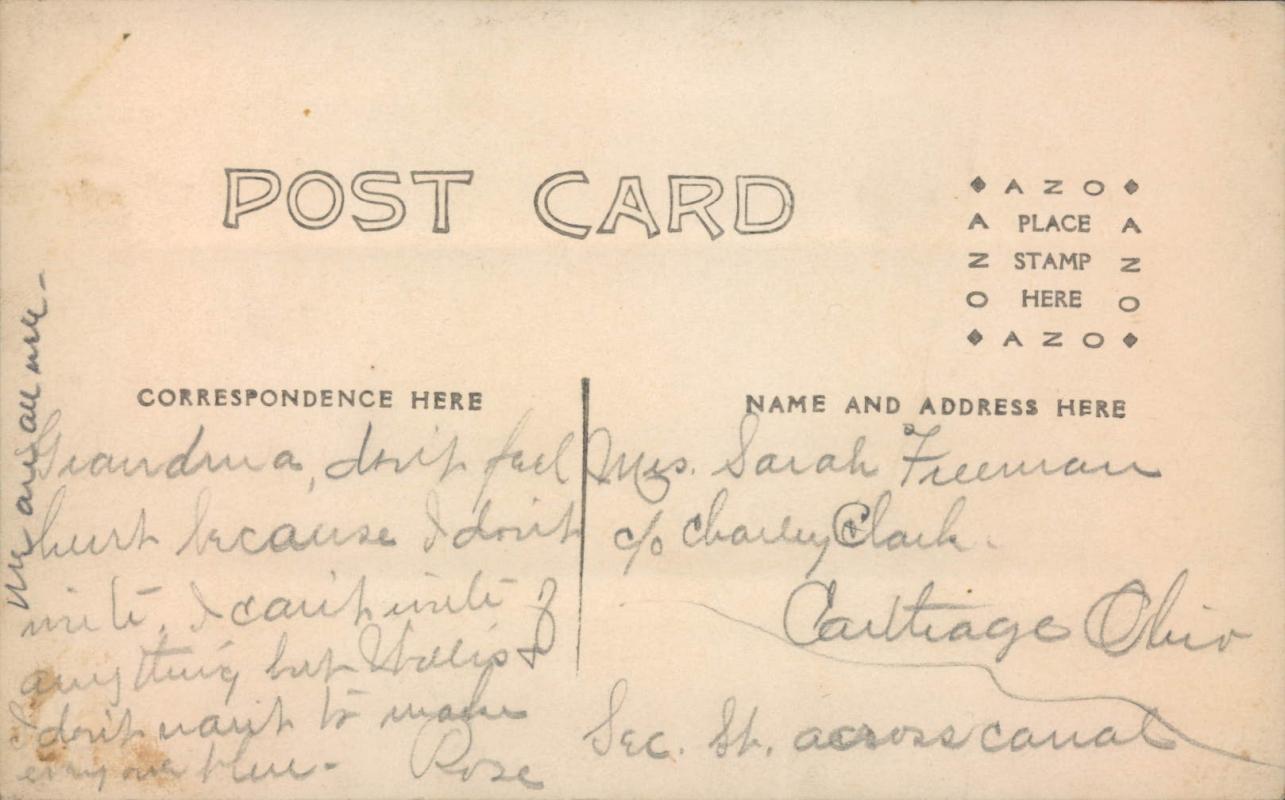 POST CARD
AZO
A PLACE A
Z STAMP Z
O HERE O
AZO
CORRESPONDENCE HERE
NAME AND ADDRESS HERE
Grandma, don't feel
hurt because I don't
write, I can't write of
anything but Willis &
I don't want to make
everyone blue-
Rose
We are all well-
Mrs. Sarah Freeman
c/o Charley Clark.
Carthage Ohio
Sec. St. across canal